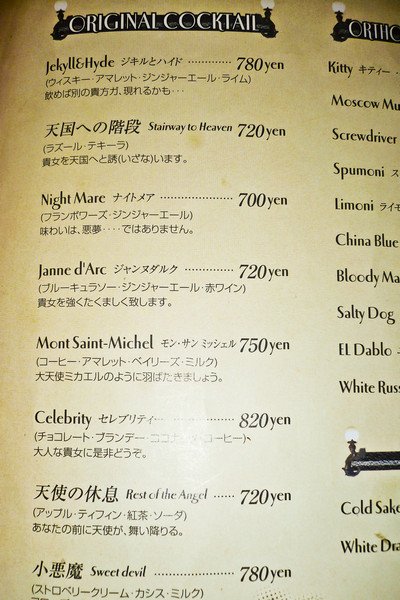 ORIGINAL COCKTAIL
Jekyll&Hyde ジキルとハイド ············· 780yen
(ウィスキー・アマレット・ジンジャーエール・ライム)
飲めば別の貴方ガ、現れるかも・・・
天国への階段 Stairway to Heaven 720yen
(ラズール・テキーラ)
貴女を天国へと誘(いざな)います。
Night Mare ナイトメア ····················· 700yen
(フランボワーズ・ジンジャーエール)
味わいは、悪夢・・・・ではありません。
Janne d'Arc ジャンヌダルク ·············· 720yen
(ブルーキュラソー・ジンジャーエール・赤ワイン)
貴女を強くたくましく致します。
Mont Saint-Michel モン・サン ミッシェル 750yen
(コーヒー・アマレット・ベイリーズ・ミルク)
大天使ミカエルのように羽ばたきましょう。
Celebrity セレブリティー ··················· 820yen
(チョコレート・ブランデー・ココナッツ・コーヒー)、
大人な貴女に是非どうぞ。
天使の休息 Rest of the Angel ······ 720yen
(アップル・ティフィン・紅茶・ソーダ)
あなたの前に天使が、舞い降りる。
小悪魔 Sweet devil ···················· 780yen
(ストロベリークリーム・カシス・ミルク)
ORTHO
Kitty キティー
Moscow Mu
Screwdriver
Spumoni ス
Limoni ライモ
China Blue
Bloody Ma
Salty Dog
EL Dablo
White Russ
Cold Sake
White Dra